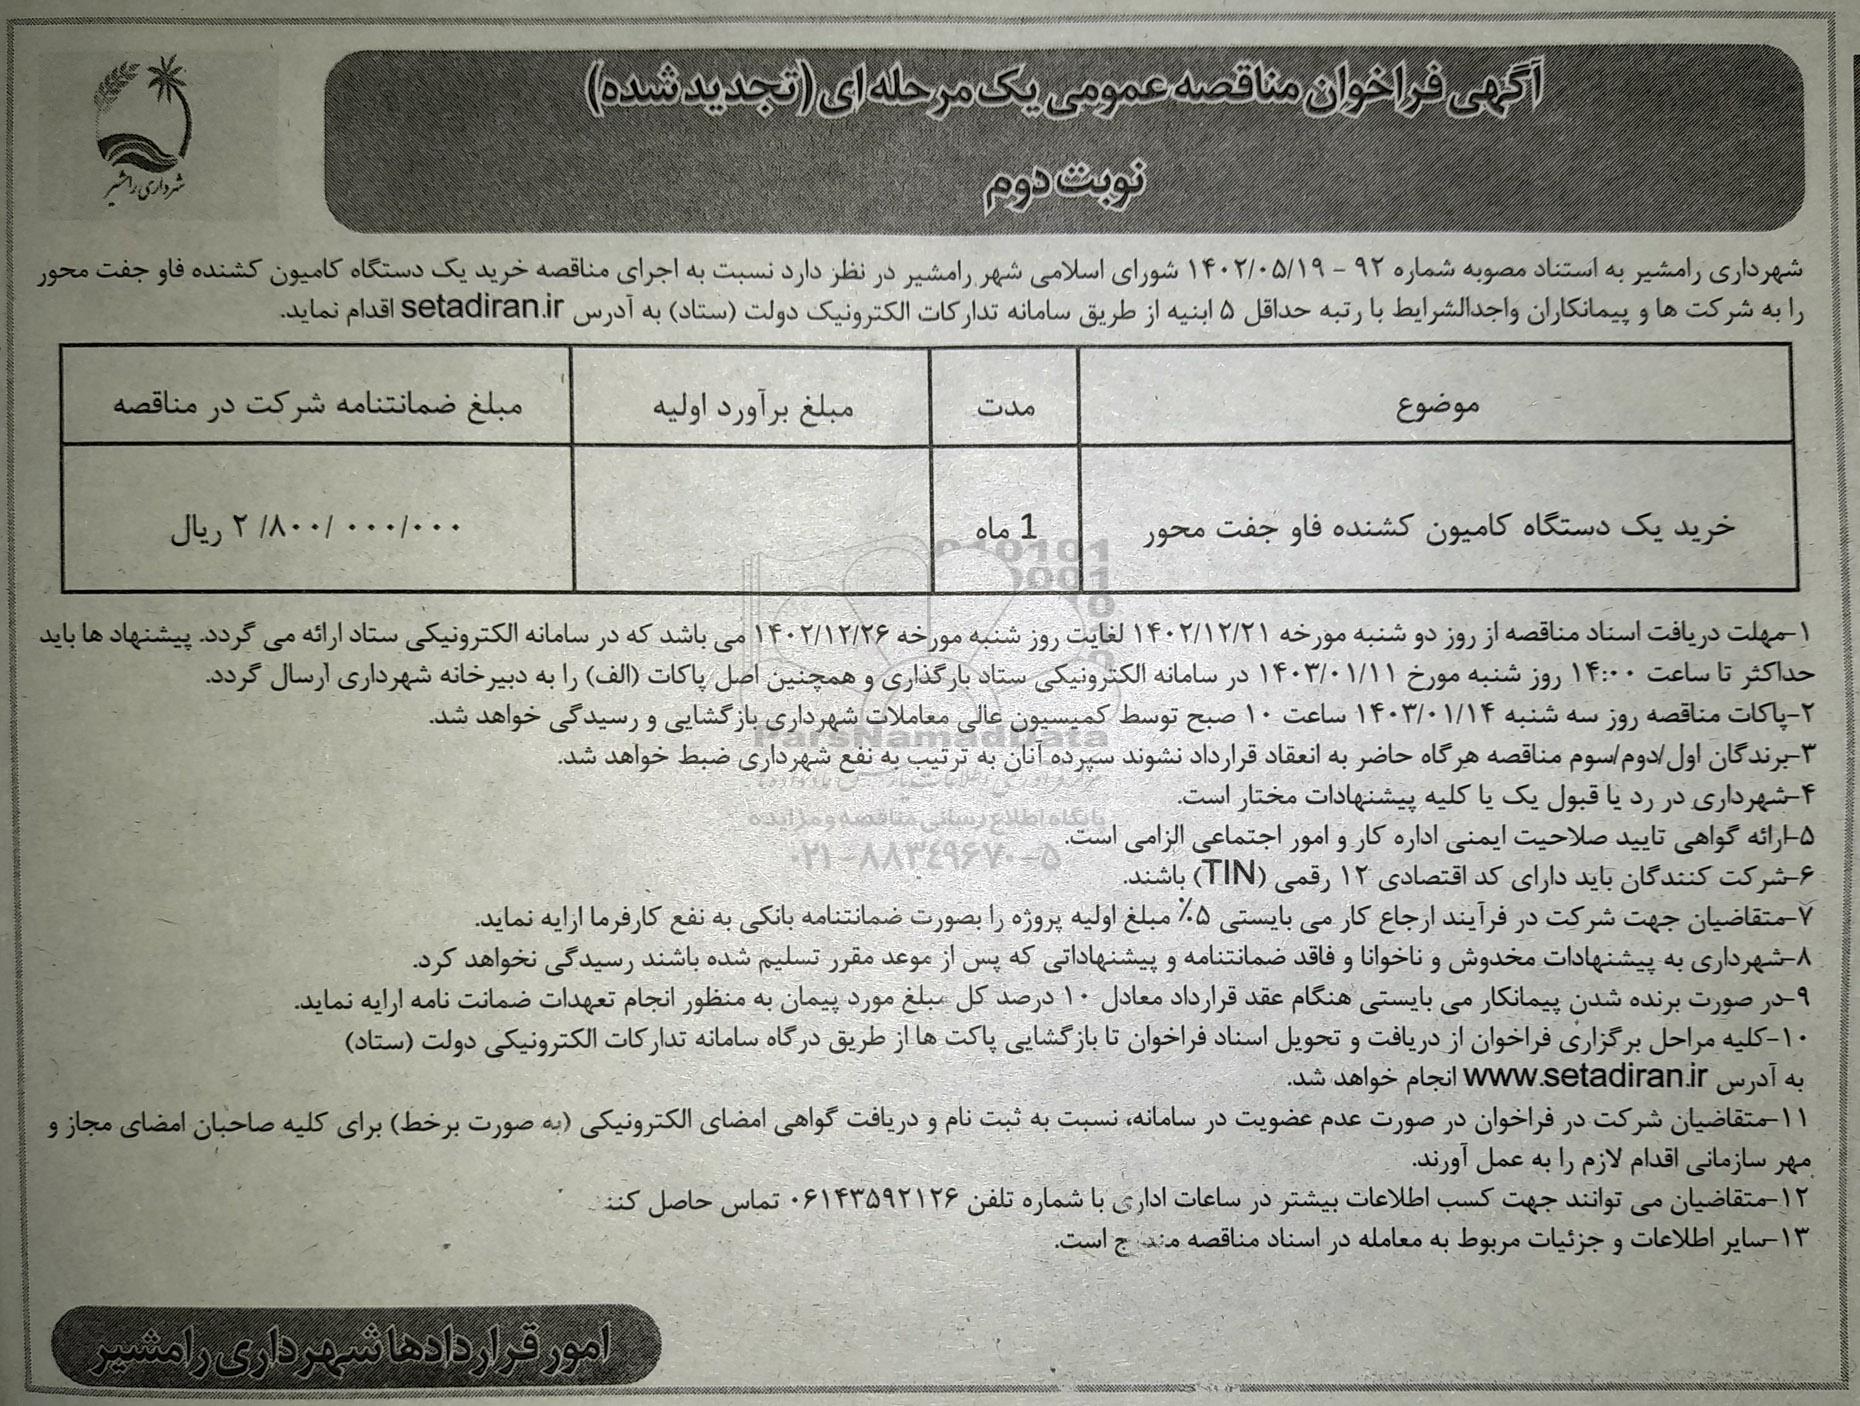 آگهی فراخوان مناقصه عمومی یک مرحله ای (تجدید شده)
نوبت دوم
شهرداری رامشیر
شهرداری رامشیر به استناد مصوبه شماره ۹۲ - ۱۴۰۲/۰۵/۱۹ شورای اسلامی شهر رامشیر در نظر دارد نسبت به اجرای مناقصه خرید یک دستگاه کامیون کشنده فاو جفت محور
را به شرکت ها و پیمانکاران واجدالشرایط با رتبه حداقل ۵ ابنیه از طریق سامانه تدارکات الکترونیک دولت (ستاد) به آدرس setadiran.ir اقدام نماید.
موضوع مدت مبلغ برآورد اولیه مبلغ ضمانتنامه شرکت در مناقصه
خرید یک دستگاه کامیون کشنده فاو جفت محور 1 ماه ۲ /۸۰۰/ ۰۰۰/۰۰۰ ریال
۱-مهلت دریافت اسناد مناقصه از روز دو شنبه مورخه ۱۴۰۲/۱۲/۲۱ لغایت روز شنبه مورخه ۱۴۰۲/۱۲/۲۶ می باشد که در سامانه الکترونیکی ستاد ارائه می گردد. پیشنهاد ها باید
حداکثر تا ساعت ۱۴:۰۰ روز شنبه مورخ ۱۴۰۳/۰۱/۱۱ در سامانه الکترونیکی ستاد بارگذاری و همچنین اصل پاکات (الف) را به دبیرخانه شهرداری ارسال گردد.
۲-پاکات مناقصه روز سه شنبه ۱۴۰۳/۰۱/۱۴ ساعت ۱۰ صبح توسط کمیسیون عالی معاملات شهرداری بازگشایی و رسیدگی خواهد شد.
۳-برندگان اول/دوم/سوم مناقصه هرگاه حاضر به انعقاد قرارداد نشوند سپرده آنان به ترتیب به نفع شهرداری ضبط خواهد شد.
۴-شهرداری در رد یا قبول یک یا کلیه پیشنهادات مختار است.
۵-ارائه گواهی تایید صلاحیت ایمنی اداره کار و امور اجتماعی الزامی است.
۶-شرکت کنندگان باید دارای کد اقتصادی ۱۲ رقمی (TIN) باشند.
۷-متقاضیان جهت شرکت در فرآیند ارجاع کار می بایستی ۵٪ مبلغ اولیه پروژه را بصورت ضمانتنامه بانکی به نفع کارفرما ارایه نماید.
۸-شهرداری به پیشنهادات مخدوش و ناخوانا و فاقد ضمانتنامه و پیشنهاداتی که پس از موعد مقرر تسلیم شده باشند رسیدگی نخواهد کرد.
۹-در صورت برنده شدن پیمانکار می بایستی هنگام عقد قرارداد معادل ۱۰ درصد کل مبلغ مورد پیمان به منظور انجام تعهدات ضمانت نامه ارایه نماید.
۱۰-کلیه مراحل برگزاری فراخوان از دریافت و تحویل اسناد فراخوان تا بازگشایی پاکت ها از طریق درگاه سامانه تدارکات الکترونیکی دولت (ستاد)
به آدرس www.setadiran.ir انجام خواهد شد.
۱۱-متقاضیان شرکت در فراخوان در صورت عدم عضویت در سامانه، نسبت به ثبت نام و دریافت گواهی امضای الکترونیکی (به صورت برخط) برای کلیه صاحبان امضای مجاز و
مهر سازمانی اقدام لازم را به عمل آورند.
۱۲-متقاضیان می توانند جهت کسب اطلاعات بیشتر در ساعات اداری با شماره تلفن ۰۶۱۴۳۵۹۲۱۲۶ تماس حاصل کنند
۱۳-سایر اطلاعات و جزئیات مربوط به معامله در اسناد مناقصه مندرج است.
امور قراردادها شهرداری رامشیر
ParsNamadData
پایگاه اطلاع رسانی مناقصه و مزایده
۰۲۱-۸۸۳۴۹۶۷۰-۵